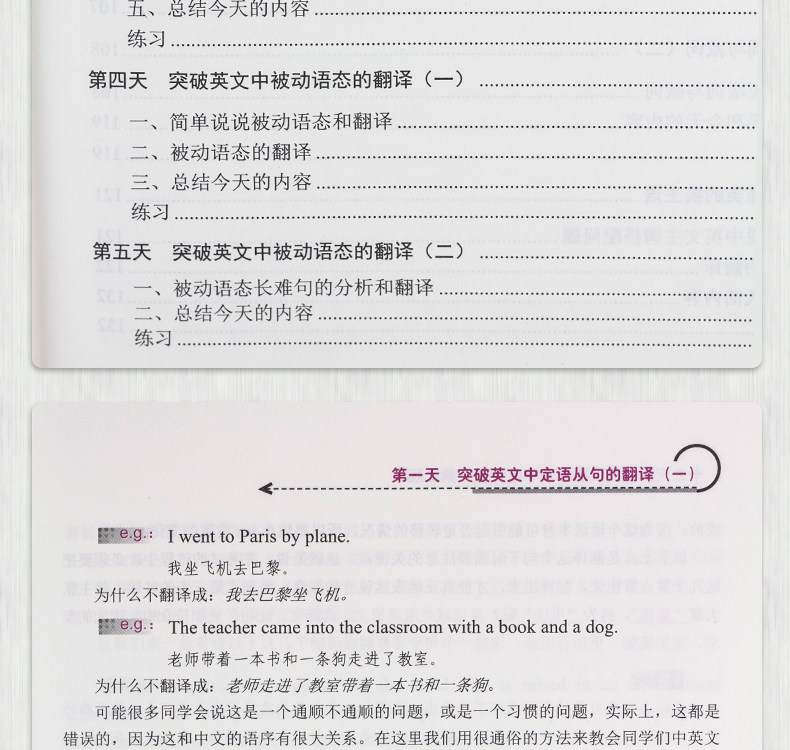 五、总结今天的内容
练习
第四天 突破英文中被动语态的翻译（一）
一、简单说说被动语态和翻译
二、被动语态的翻译
三、总结今天的内容
练习
第五天 突破英文中被动语态的翻译（二）
一、被动语态长难句的分析和翻译
二、总结今天的内容
练习
第一天 突破英文中定语从句的翻译（一）
e.g.： I went to Paris by plane.
我坐飞机去巴黎。
为什么不翻译成：我去巴黎坐飞机。
e.g.： The teacher came into the classroom with a book and a dog.
老师带着一本书和一条狗走进了教室。
为什么不翻译成：老师走进了教室带着一本书和一条狗。
可能很多同学会说这是一个通顺不通顺的问题，或是一个习惯的问题，实际上，这都是
错误的，因为这和中文的语序有很大关系。在这里我们用很通俗的方法来教会同学们中英文